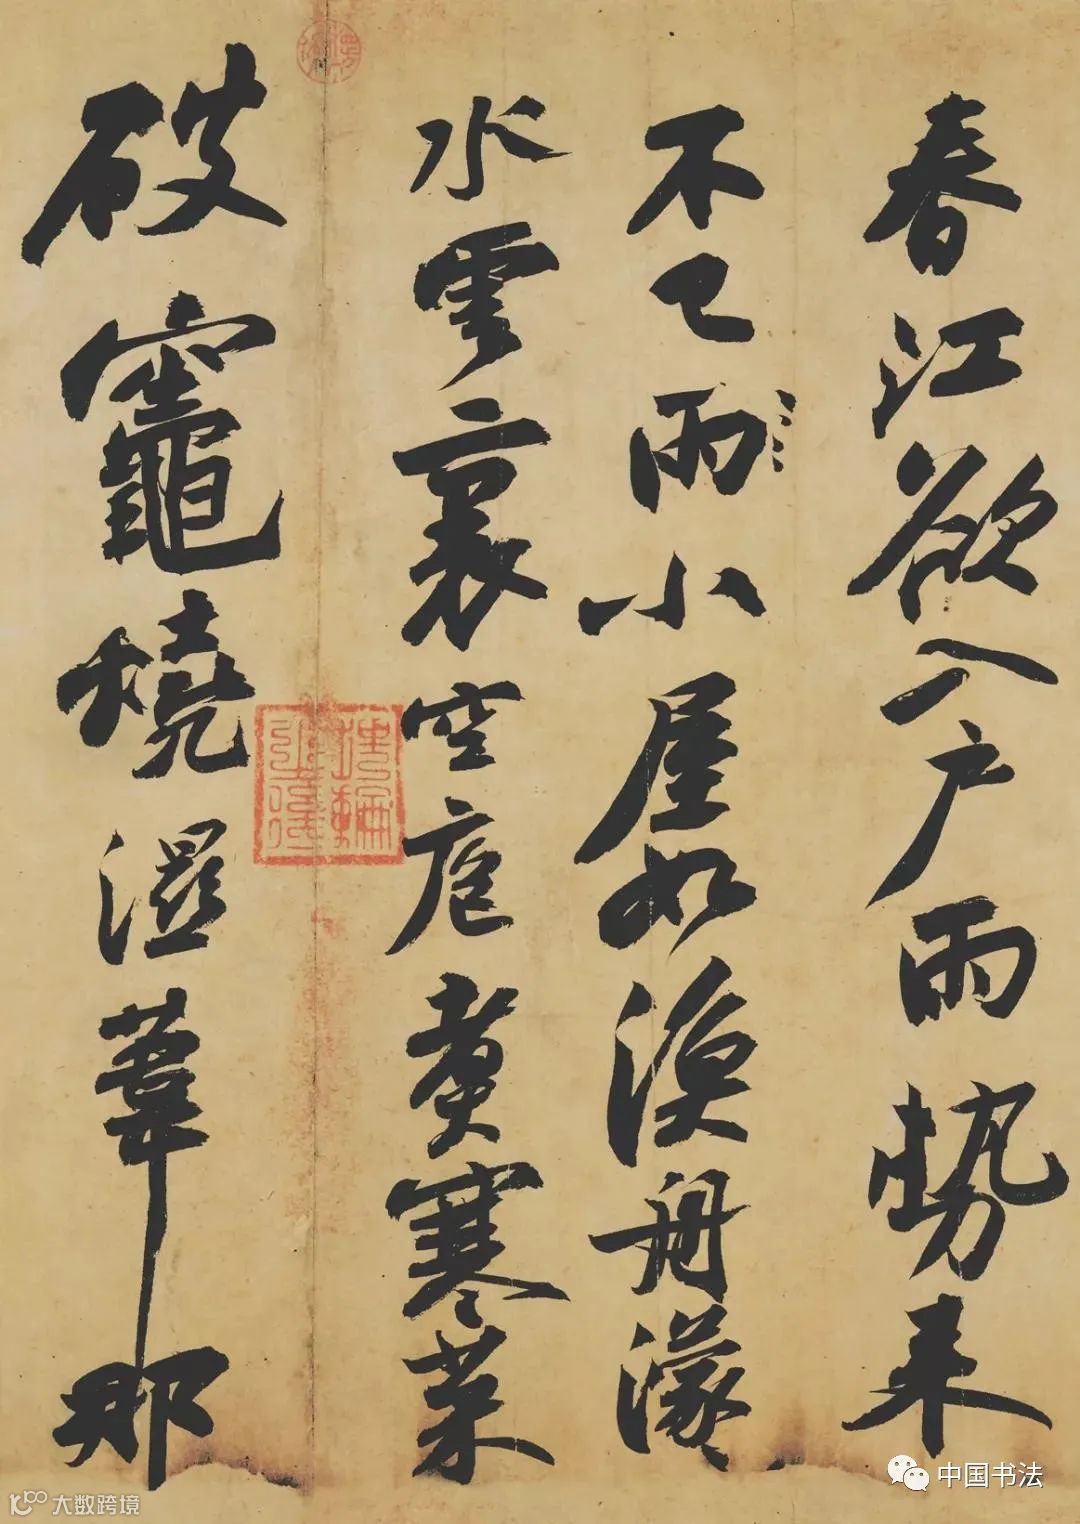 春江欲入户雨勢来
不已雨小屋如漁舟濛〻
水雲裏空庖煮寒菜
破竈燒濕葦那
中国书法
大数跨境